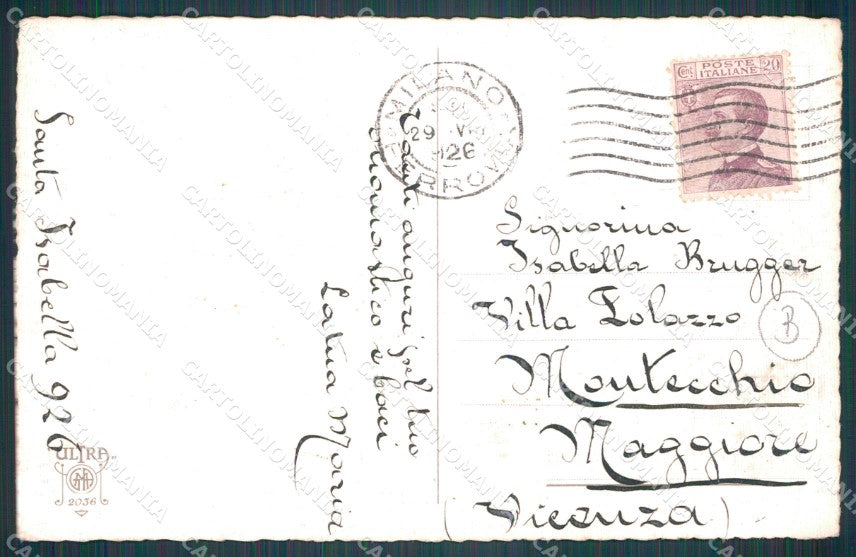 Santa Isabella 926
Tanti auguri pel tuo
onomastico e baci
La tua Maria
MILANO
29
926
FERROVIA
POSTE
ITALIANE
Cent. 20
Signorina
Isabella Brugger
Villa Lolazzo
Montecchio
Maggiore
(Vicenza)
B
ULTRA
2036
CARTOLINOMANIA